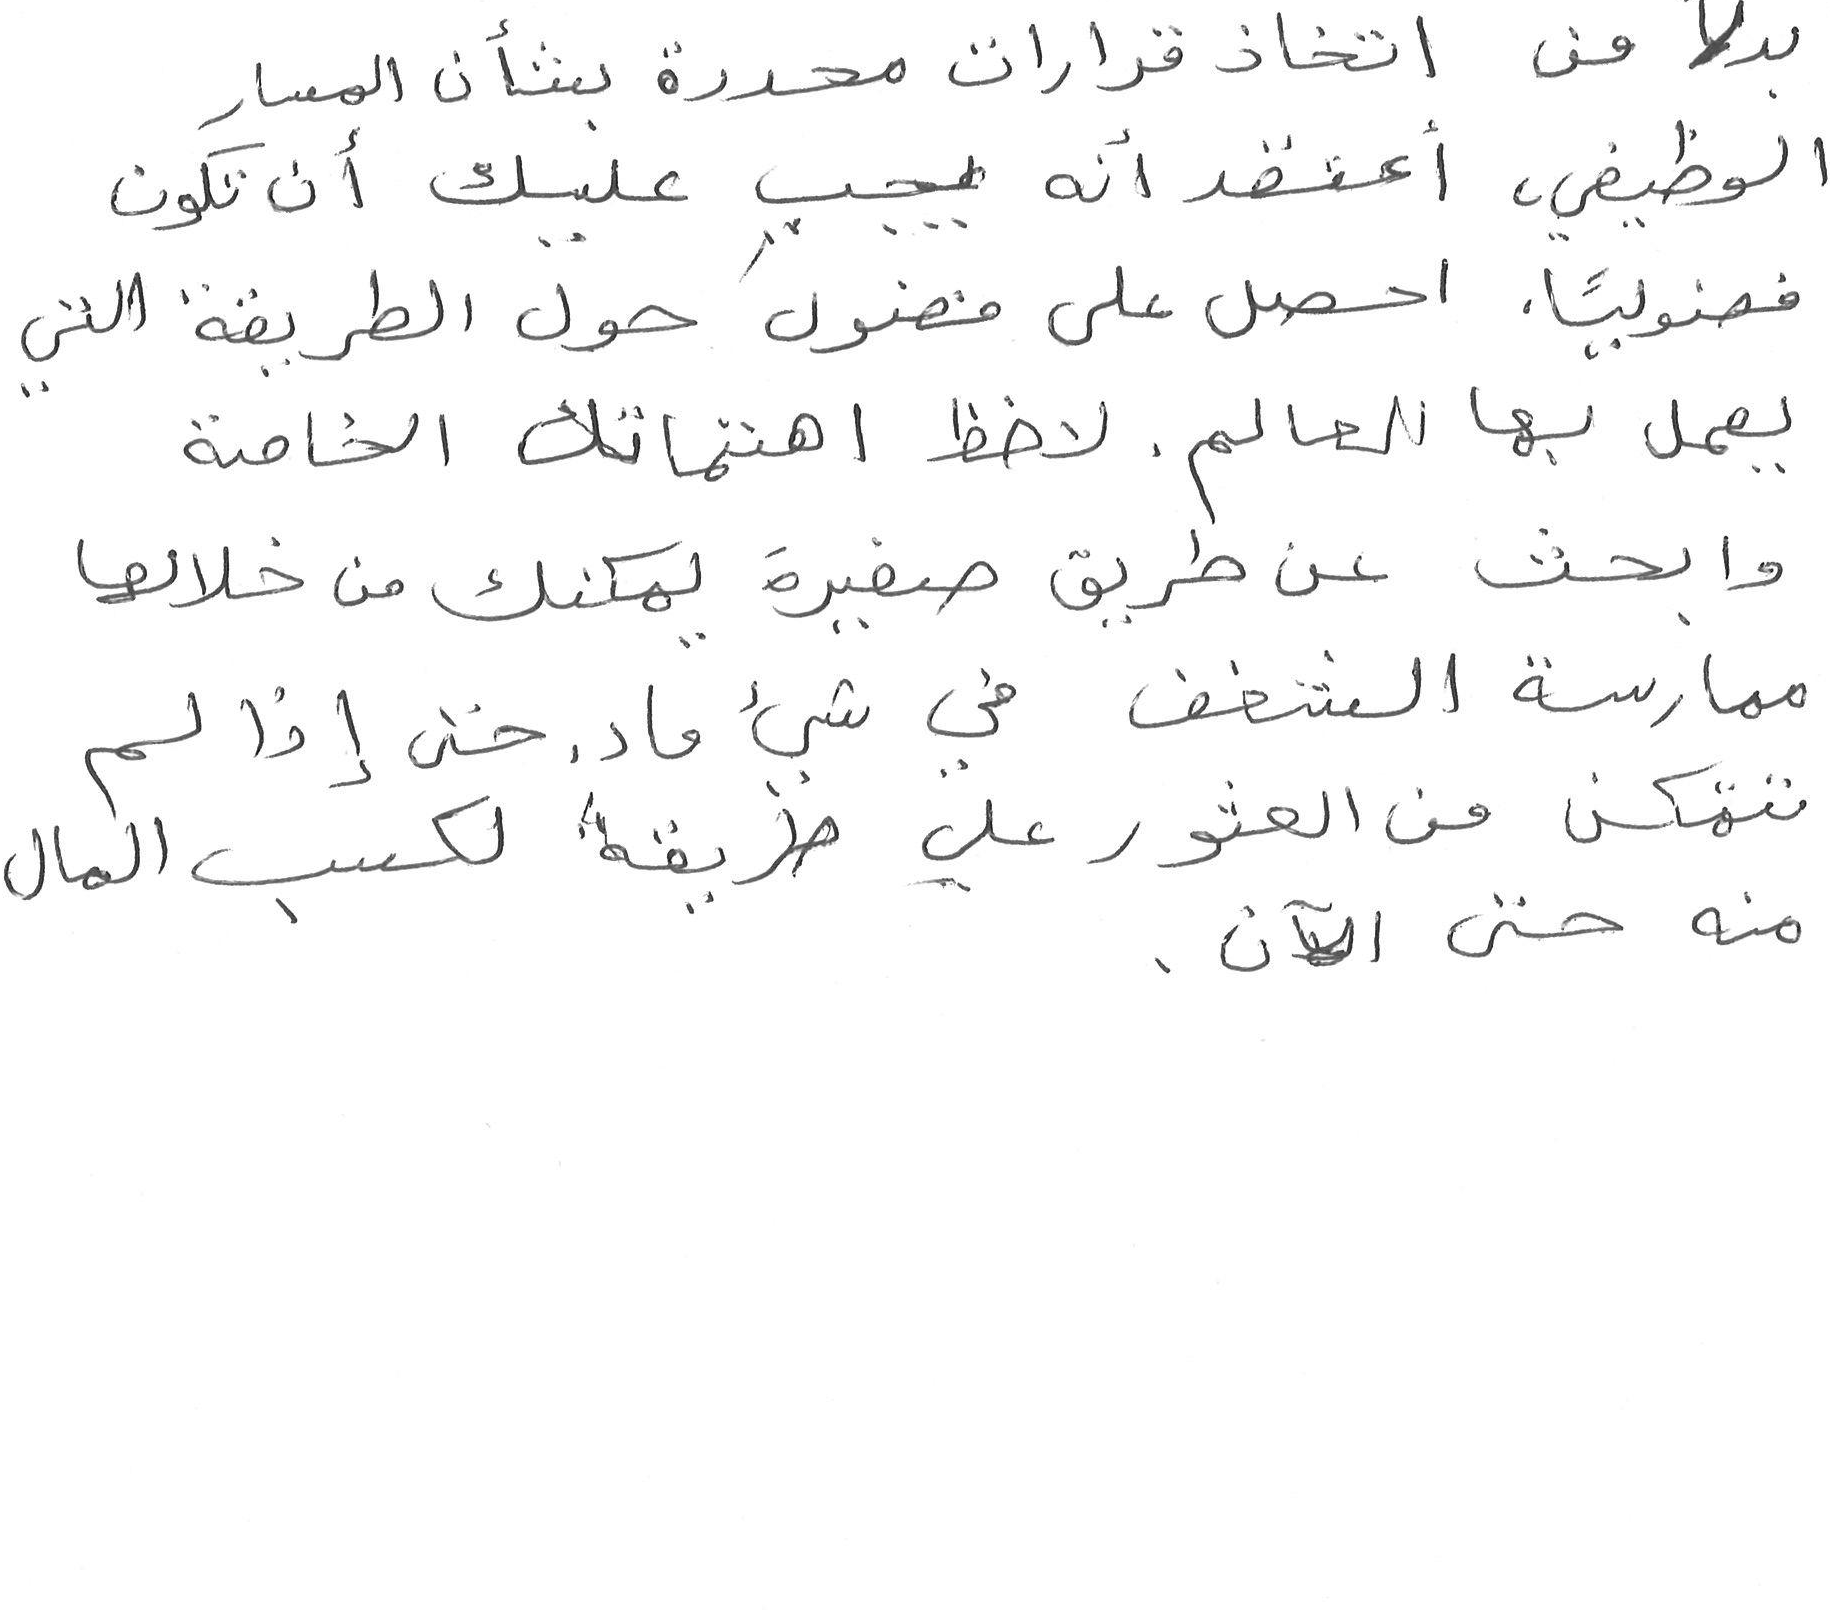 بدلاً من اتخاذ قرارات محددة بشأن المسار
الوظيفي، أعتقد أنه يجب عليك أن تكون
فضوليًا. احصل على فضول حول الطريقة التي
يعمل بها العالم. لاحظ اهتماتك الخاصة
وابحث عن طريق صغيرة يمكنك من خلالها
ممارسة الشغف في شيئ ماد. حتى إذا لم
تتمكن من العثور على طريقة لكسب المال
منه حتى الآن.